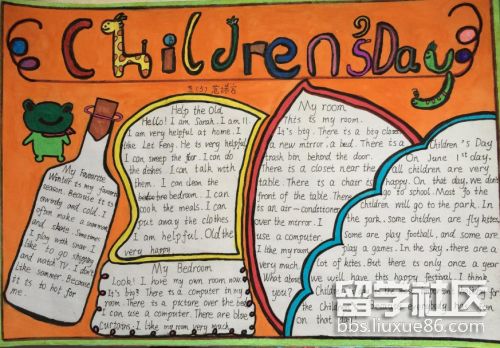 Children's Day
My Favourite
Winter is my favorite
season. Because it is
windy and cold. I
often make a snowman
and skate. Sometimes
I play with snow. I
like to go shopping
and watch TV. I don't
like summer. Because
it is to hot for
me.
Help the Old
Hello! I am Sarah. I am 11.
I am very helpful at home. I
like Lei Feng. He is very helpful.
I can sweep the floor. I can do
the dishes. I can talk with
them. I can clean the
bedroom. I can
cook the meals. I can
put away the clothes
I am helpful. Old the
very happy.
My Bedroom
Look! I have my own room now.
It's big! There is a computer in my
room. There is a picture over the bed.
can use a computer. There are blue
curtains. I like my room very much.
My room
This is my room.
It's big. There is a big closet,
a new mirror, a bed. There is a
trash bin behind the door.
There is a closet near the
table. There is a chair is
front of the table. There
is an air-conditioner
over the mirror. I
use a computer.
I like my room
very much.
What about
you?
Children's Day
On June 1st day.
all children are very
happy. On that day, we don't
go to school. Most of the
children will go to the park. In
the park, some children are fly kites.
Some are play football, and some are
play a games. In the sky, there are a
lot of kites. But there is only once a year
we will have this happy festival. I think
on that day!
留学社区
bbs.liuxue86.com